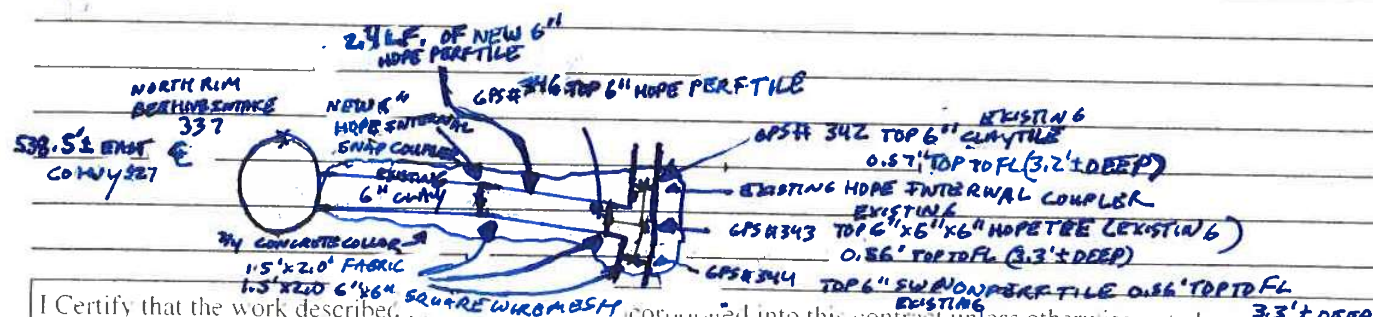 2.4 L.F. OF NEW 6"
HDPE PERF TILE
NORTH RIM
BEEHIVE INTAKE
337
538.5'± EAST ℄
CO HWY 27
NEW 6"
HDPE INTERNAL
SNAP COUPLER
GPS# 346 TOP 6" HDPE PERF TILE
EXISTING
6" CLAY
EXISTING
GPS# 342 TOP 6" CLAY TILE
0.57' TOP TO FL (3.2'± DEEP)
EXISTING HDPE INTERNAL COUPLER
EXISTING
GPS#343 TOP 6"x6"x6" HDPE TEE (EXISTING)
0.56' TOP TO FL (3.3'± DEEP)
GPS#344 TOP 6" SW NON PERF TILE 0.56' TOP TO FL
EXISTING 3.3'± DEEP
CONCRETE COLLAR
1.5'x2.0' FABRIC
1.5'x2.0 6"x6" SQUARE WIRE MESH
I Certify that the work described into this contract unless otherwise